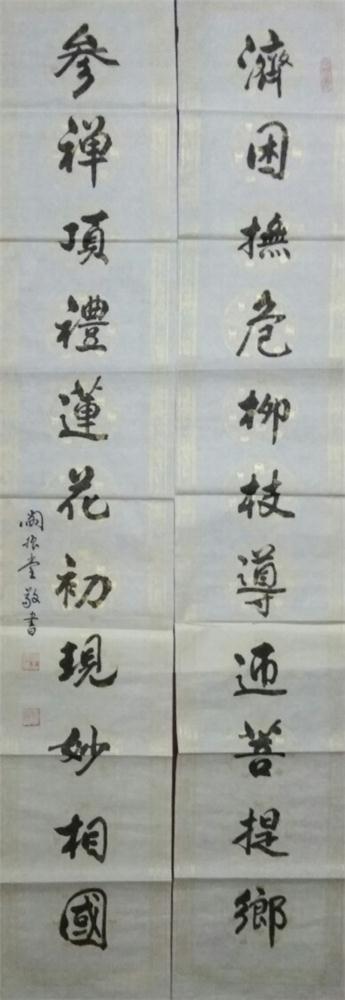 濟困撫危柳枝導菩提鄉
參禪頂禮蓮花初現妙相國
振堂敬書